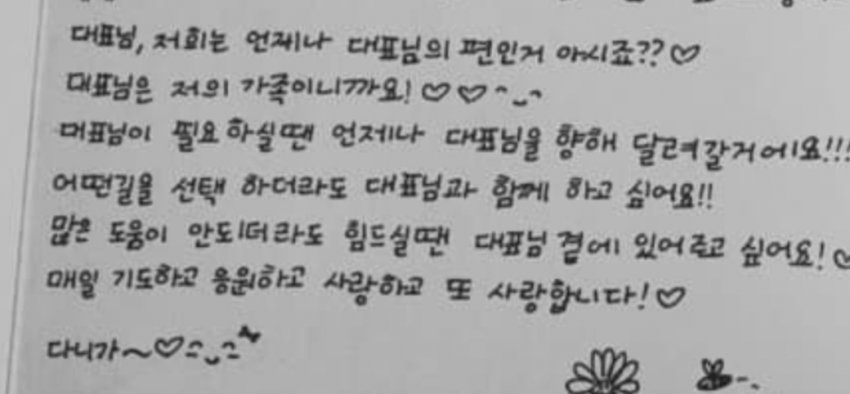 대표님, 저희는 언제나 대표님의 편인거 아시죠??♡
대표님은 저의 가족이니까요! ♡♡^_^
대표님이 필요하실땐 언제나 대표님을 향해 달려갈거에요!!!
어떤길을 선택 하더라도 대표님과 함께 하고 싶어요!!
많은 도움이 안되더라도 힘드실땐 대표님 곁에 있어주고 싶어요!♡
매일 기도하고 응원하고 사랑하고 또 사랑합니다!♡
다니가~♡^_^